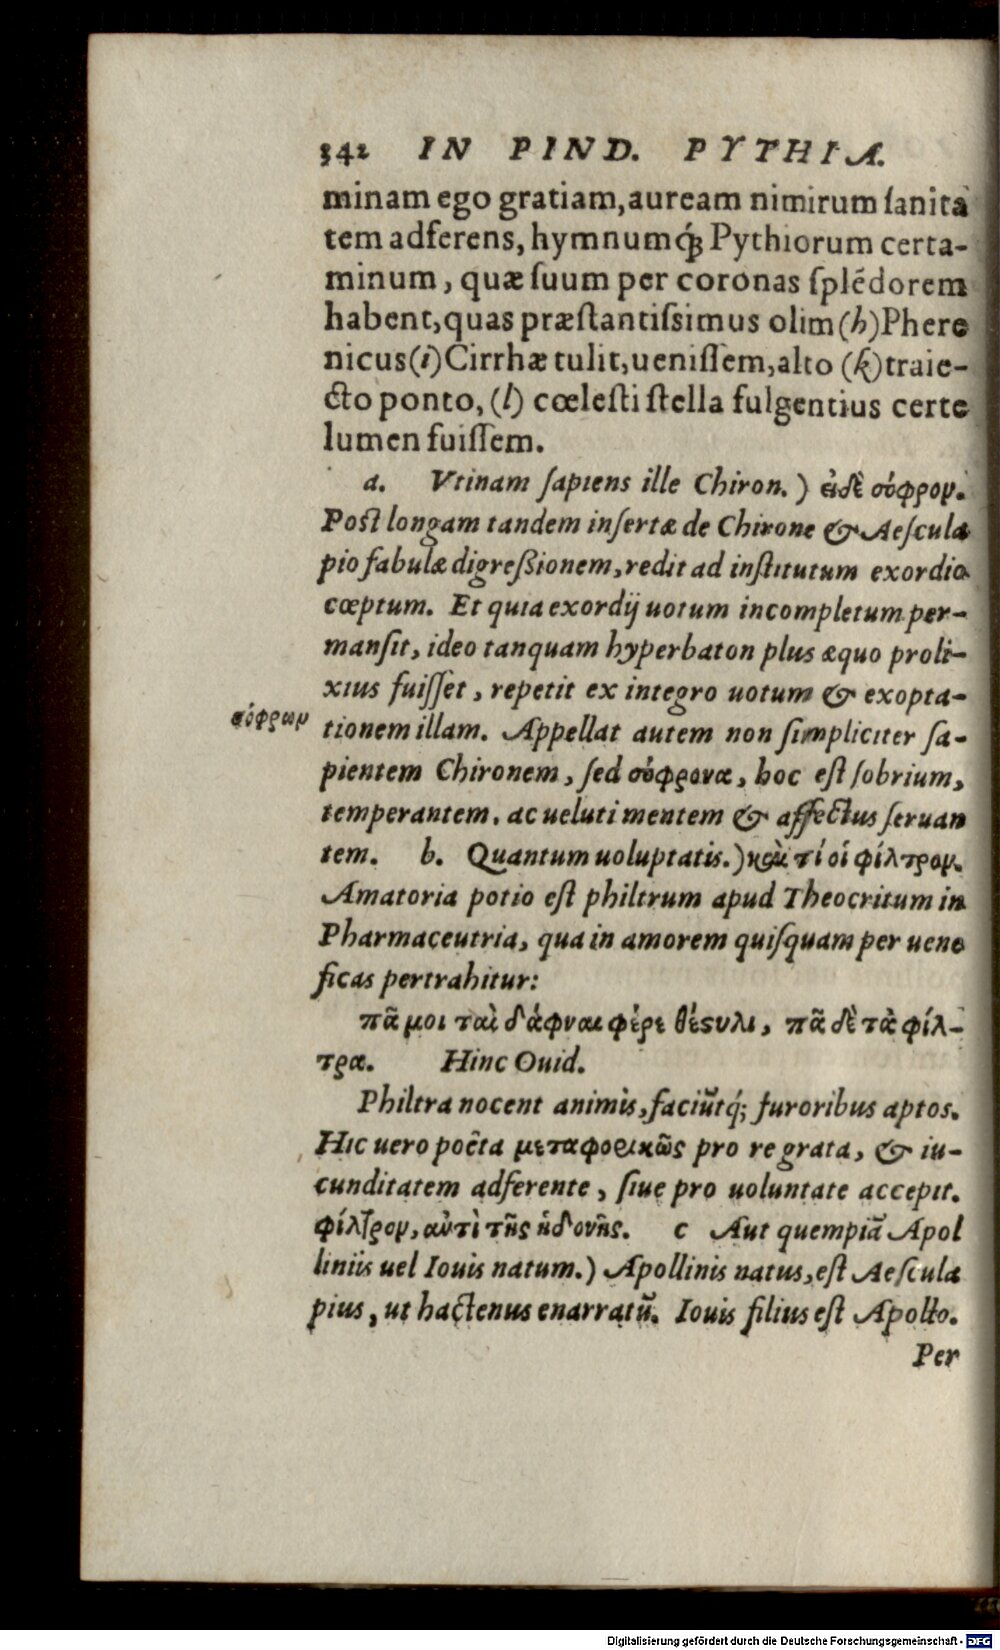 342 IN PIND. PYTHIA.
minam ego gratiam, auream nimirum ſanita
tem adferens, hymnumq́ꝫ Pythiorum certa-
minum, quæ ſuum per coronas ſplẽdorem
habent, quas præſtantiſsimus olim (h) Phere
nicus (i) Cirrhæ tulit, ueniſſem, alto (k) traie-
cto ponto, (l) cœleſti ſtella fulgentius certe
lumen fuiſſem.
a. Vtinam ſapiens ille Chiron.) εἰ δὲ σόφρον.
Poſt longam tandem inſertæ de Chirone & Aeſcula
pio fabulæ digreßionem, redit ad inſtitutum exordio
cœptum. Et quia exordij uotum incompletum per-
manſit, ideo tanquam hyperbaton plus æquo proli-
xius fuiſſet, repetit ex integro uotum & exopta-
σόφρων
tionem illam. Appellat autem non ſimpliciter ſa-
pientem Chironem, ſed σόφρονα, hoc eſt ſobrium,
temperantem, ac ueluti mentem & affectus ſeruan
tem. b. Quantum uoluptatis.) καὶ τί οἱ φίλτρον.
Amatoria potio eſt philtrum apud Theocritum in
Pharmaceutria, qua in amorem quiſquam per uene
ficas pertrahitur:
πᾶ μοι ταὶ δάφναι φέρε θέςυλι, πᾶ δὲ τὰ φίλ-
τρα. Hinc Ouid.
Philtra nocent animis, faciũtq́; furoribus aptos.
Hic uero poëta μεταφορικῶς pro re grata, & iu-
cunditatem adferente, ſiue pro uoluntate accepit.
φίλτρον, αὐτὶ τῆς ἡδονῆς. c Aut quempiã Apol
liniis uel Iouis natum.) Apollinis natus, eſt Aeſcula
pius, ut hactenus enarratũ. Iouis filius eſt Apollo.
Per
Digitalisierung gefördert durch die Deutsche Forschungsgemeinschaft - DFG